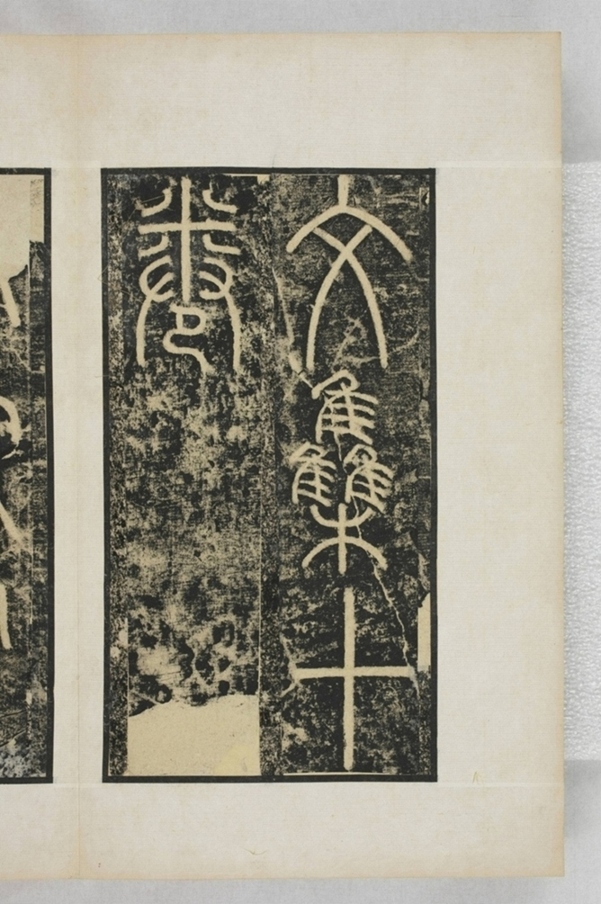 文雧十
卷